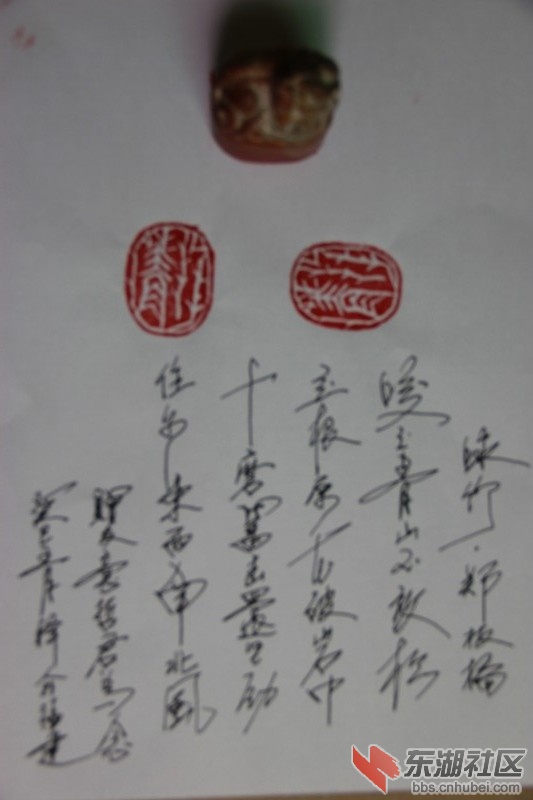 咏竹·郑板桥
咬定青山不放松
立根原在破岩中
千磨萬击還坚劲
任尔東西南北風
君为念
癸巳
东湖社区
bbs.cnhubei.com